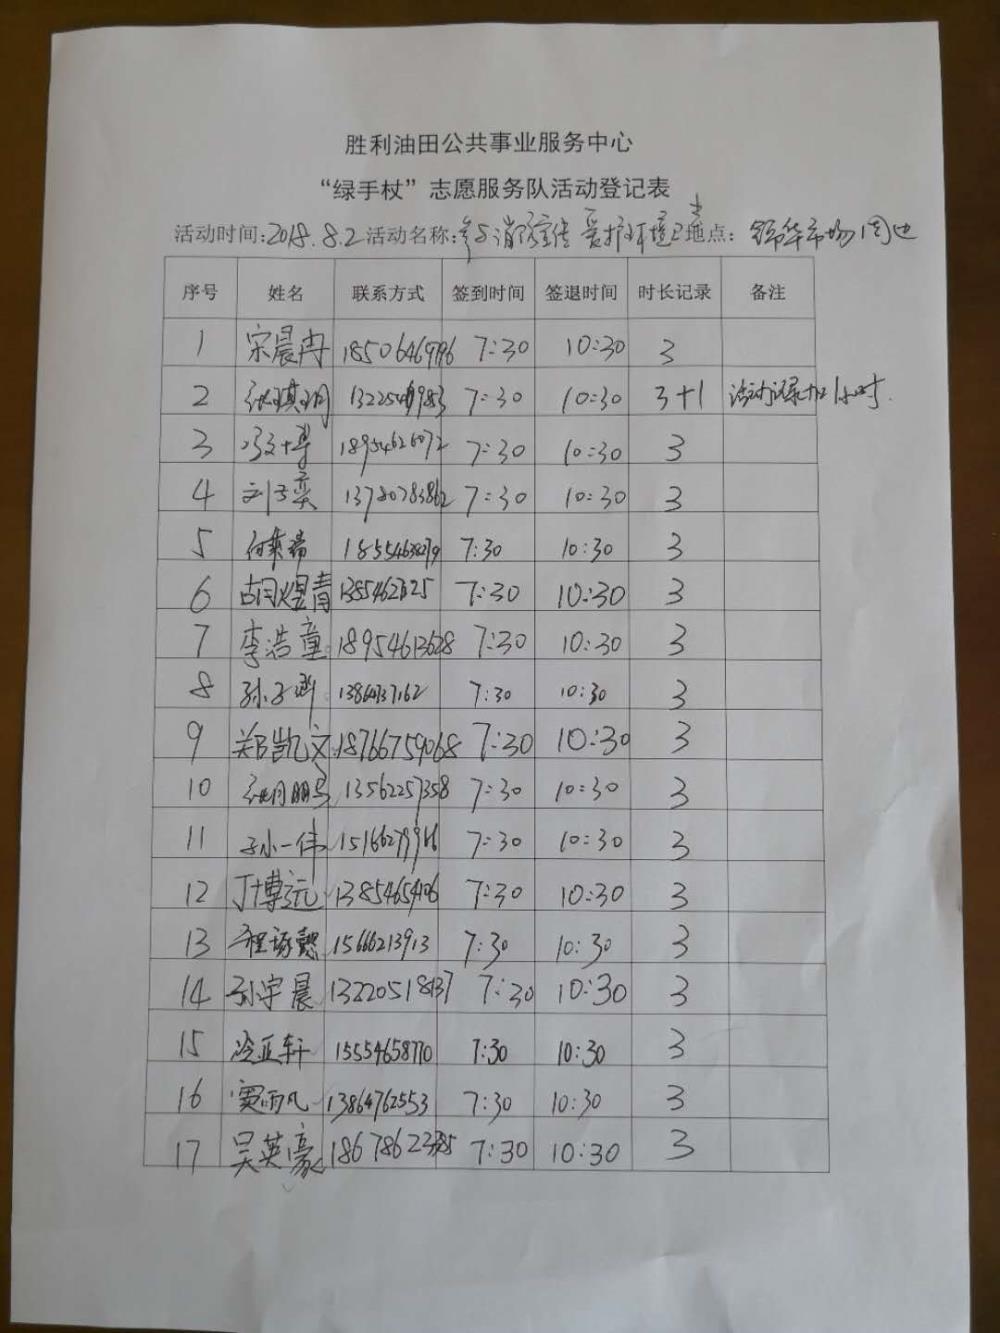 胜利油田公共事业服务中心
“绿手杖”志愿服务队活动登记表
活动时间:2018.8.2 活动名称:参与消防宣传 爱护环境卫生 地点: 锦华市场周边
序号 姓名 联系方式 签到时间 签退时间 时长记录 备注
1 宋晨冉 7:30 10:30 3
2 7:30 10:30 3+1 活动记录加1小时.
3 18954626072 7:30 10:30 3
4 刘子奕 13780783862 7:30 10:30 3
5 18554638279 7:30 10:30 3
6 胡煜青 7:30 10:30 3
7 李浩童 18954613628 7:30 10:30 3
8 孙子涵 7:30 10:30 3
9 郑凯文 18766759068 7:30 10:30 3
10 13562257358 7:30 10:30 3
11 孙一伟 7:30 10:30 3
12 丁博远 7:30 10:30 3
13 15666213913 7:30 10:30 3
14 孙宇晨 13220518137 7:30 10:30 3
15 冷亚轩 15554658770 7:30 10:30 3
16 贾雨凡 13864762553 7:30 10:30 3
17 吴英豪 7:30 10:30 3